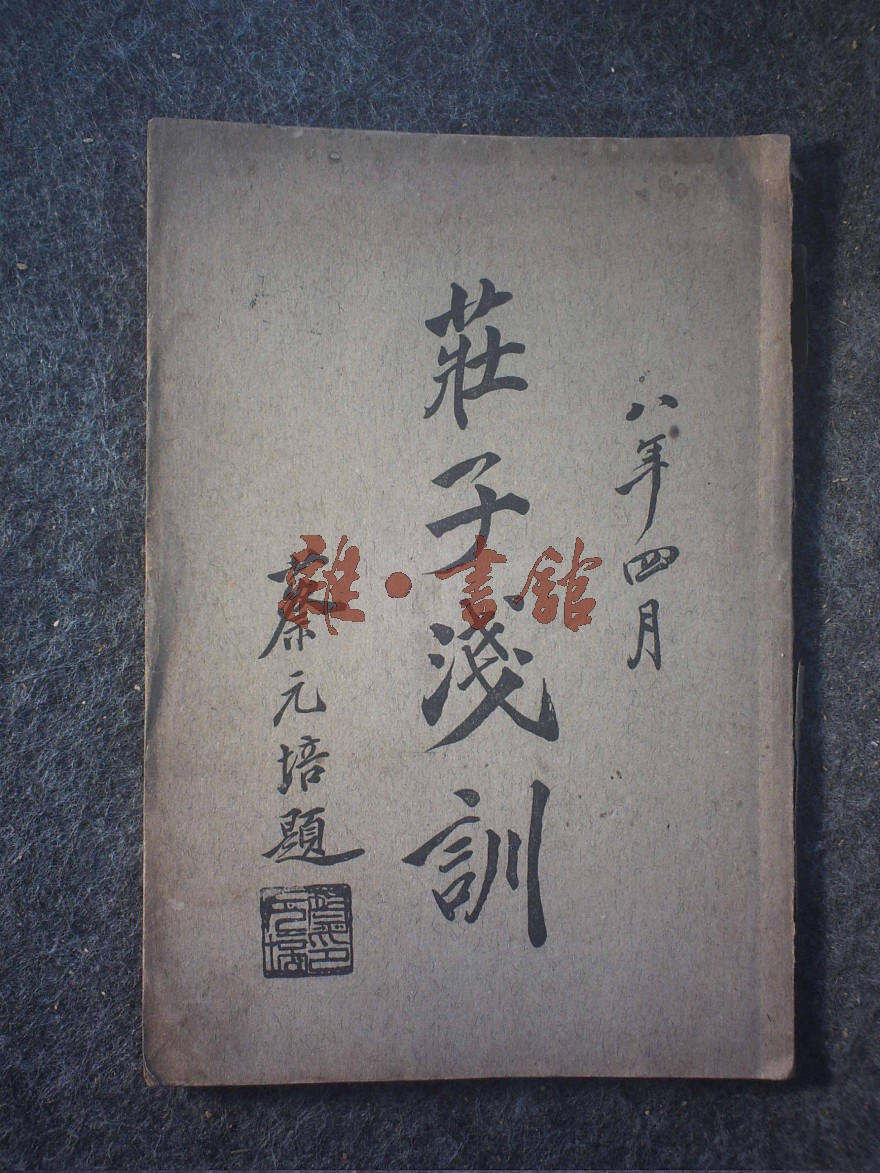 八年四月
莊子淺訓
蔡元培題
雜·書館